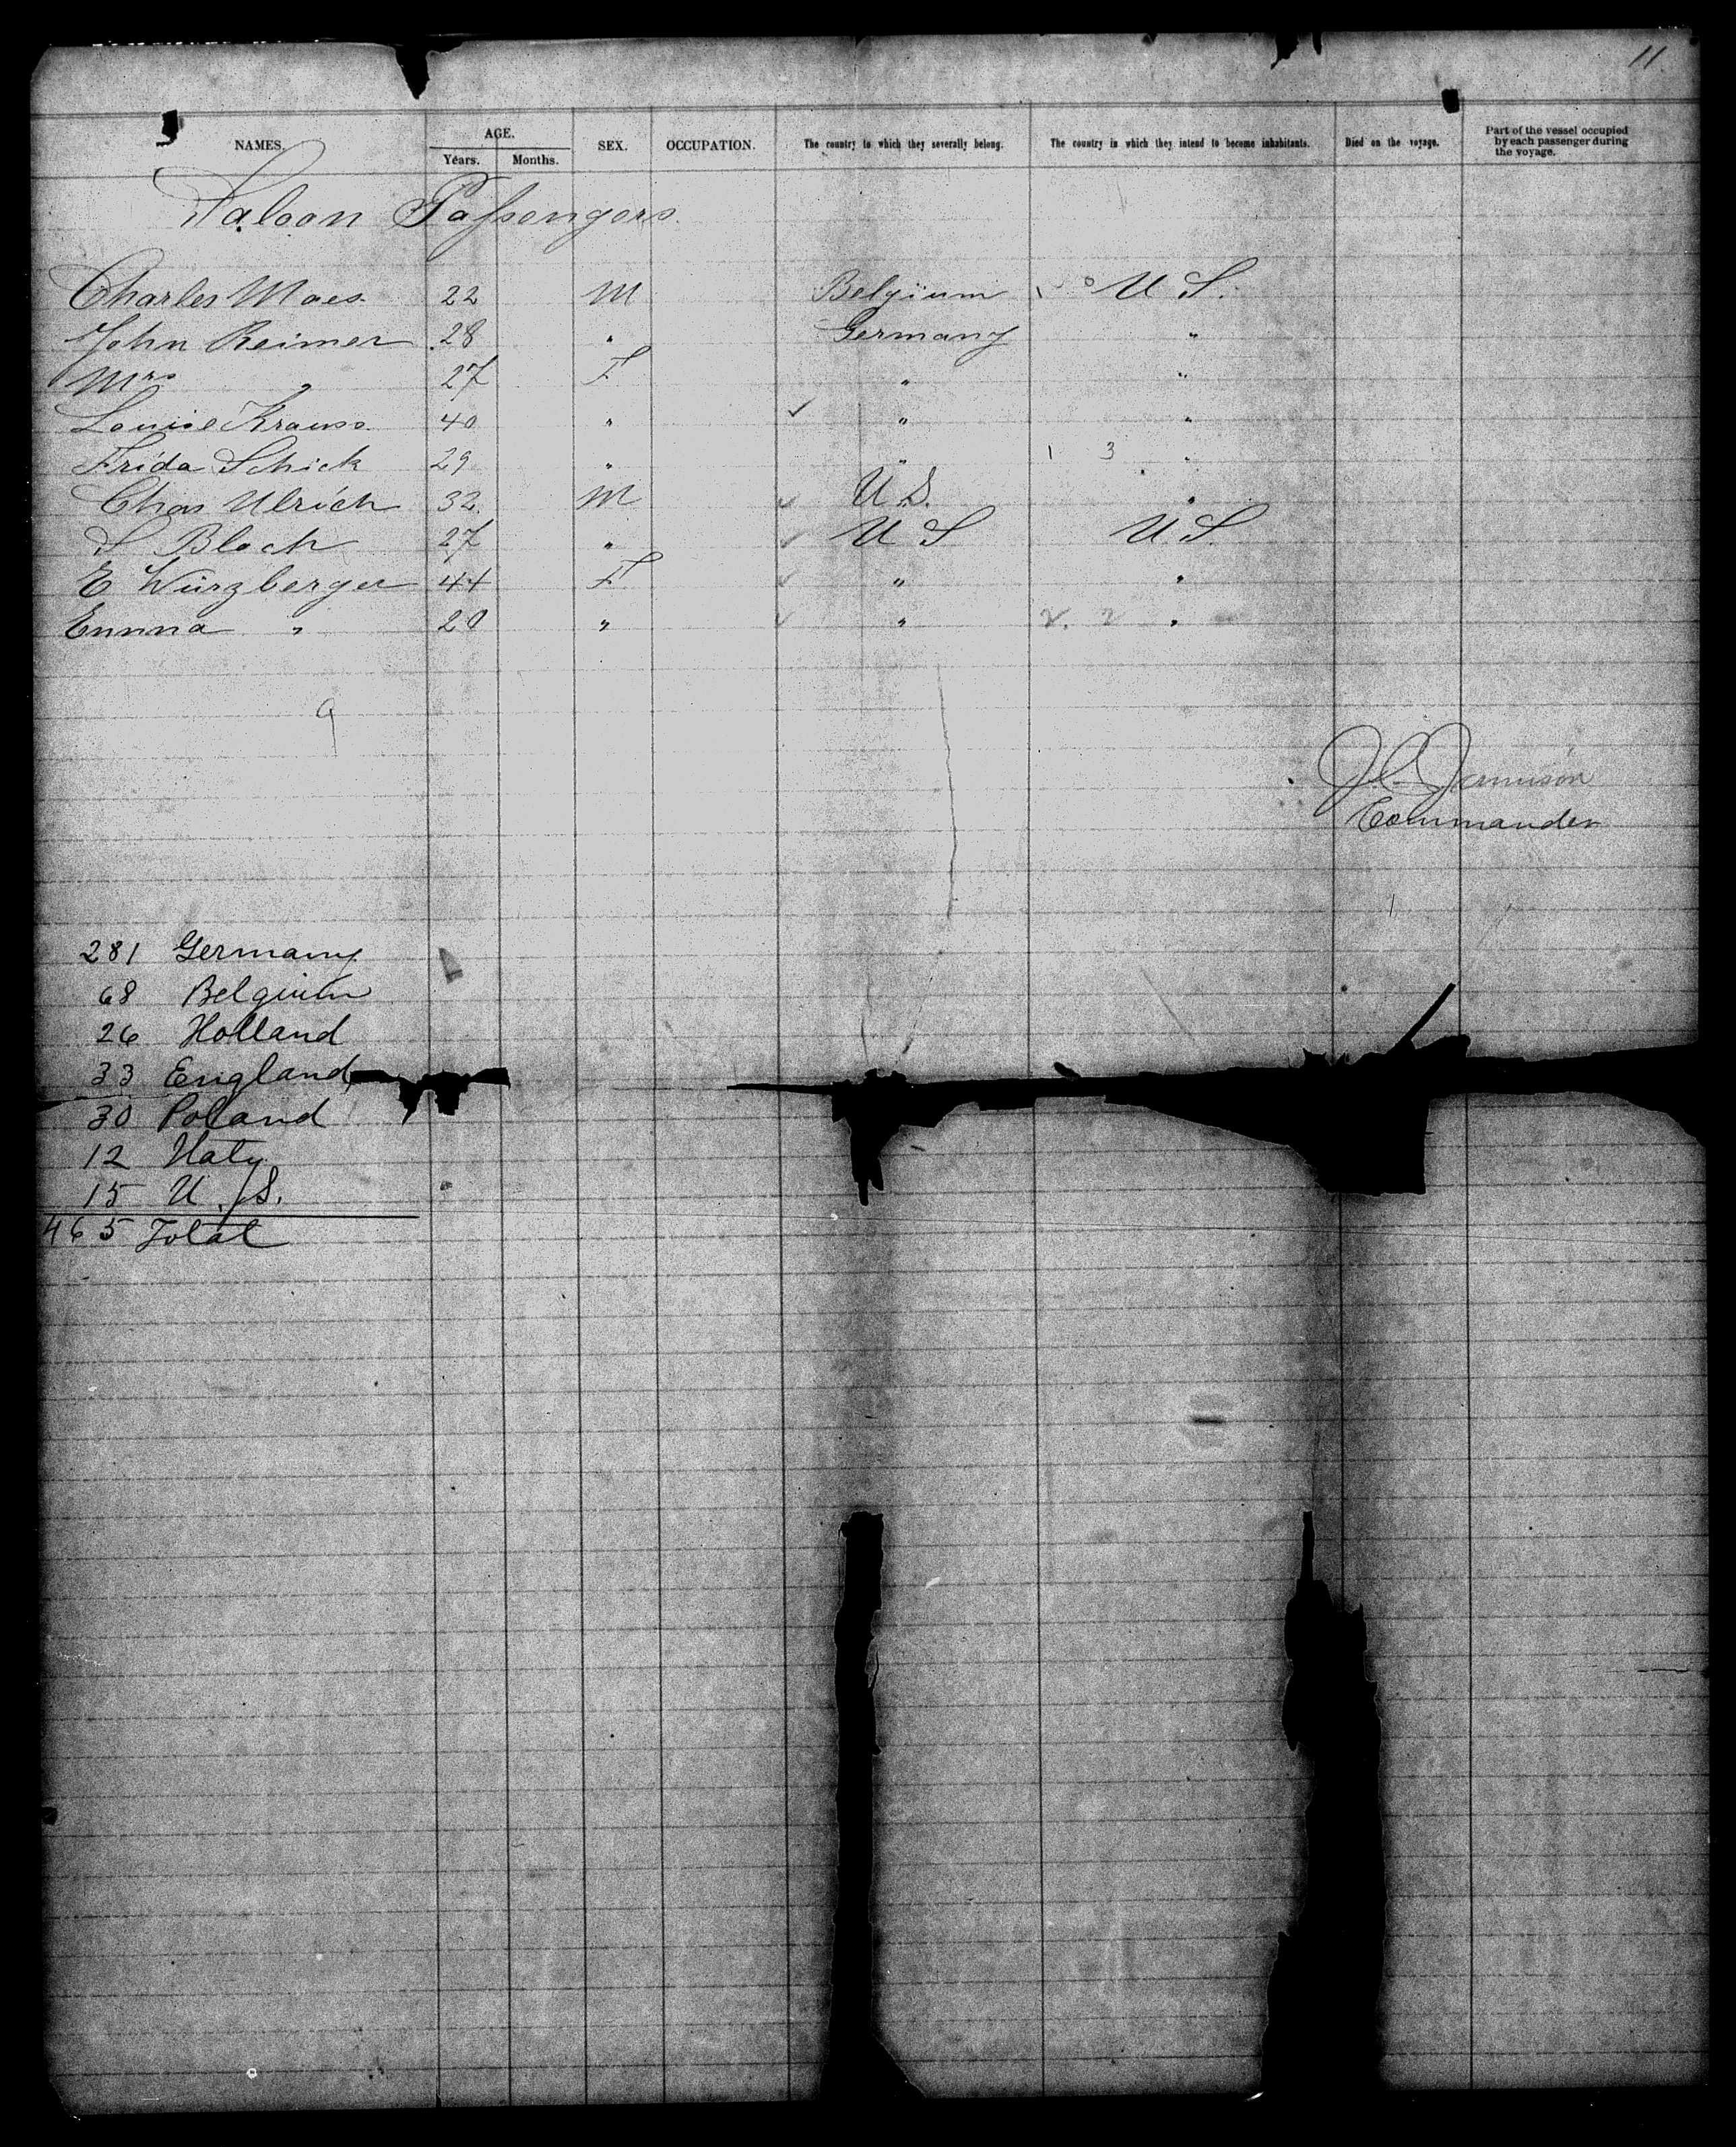 11
NAMES. AGE. Years. Months. SEX. OCCUPATION. The country to which they severally belong. The country in which they intend to become inhabitants. Died on the voyage. Part of the vessel occupied by each passenger during the voyage.
Saloon Passengers.
Charles Maes. 22 M Belgium U S.
John Reimer 28 " Germany "
Mrs " 27 F " "
Louise Krauss. 40 " " "
Frida Schick 29 " " 1 3 "
Chas Ulrich 32. M U S. "
S Bloch 27 " U S U S.
E Würzberger 44 F " "
Emma " 20 " " 2. 2 "
9
Commander
281 Germany
68 Belgium
26 Holland
33 England
30 Poland
12 Italy
15 U. S.
465 Total